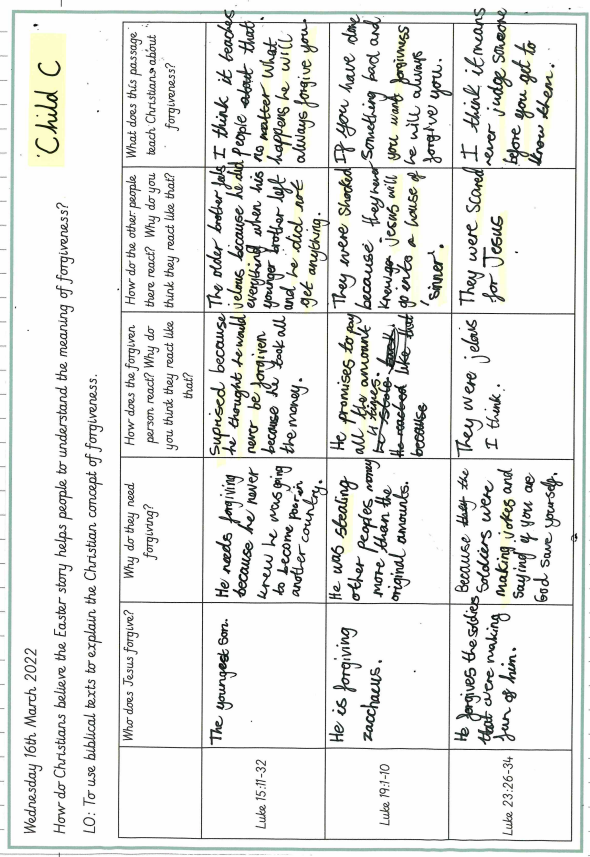 'Child C
Wednesday 16th March 2022
How do Christians believe the Easter story helps people to understand the meaning of forgiveness?
LO: To use biblical texts to explain the Christian concept of forgiveness.
Who does Jesus forgive?
Why do they need
forgiving?
How does the forgiven
person react? Why do
you think they react like
that?
How do the other people
there react? Why do you
think they react like that?
What does this passage
teach Christians about
forgiveness?
Luke 15:11-32
The youngest son.
He needs forgiving
because he never
knew he was going
to become poor in
another country.
Suprised because
he thought he would
never be forgiven
because he took all
the money.
The older brother feels
jelous because he did
everything when his
younger brother left
and he did not
get anything.
I think it teaches
people about that.
no matter what
happens he will
always forgive you.
Luke 19:1-10
He is forgiving
zacchaeus.
He was stealing
other peoples money
more than the
original amounts.
He promises to pay
all the amount
4 times.
He reacted like that
because
They were shocked
because they never
knew jesus will
go into a house of
'sinner'.
If you have done
something bad and
you want forgivness
he will always
forgive you.
Luke 23:26-34
He forgives the soldies
that were making
fun of him.
Because they the
Soldiers were
making jokes and
saying if you are
God save yourself.
They were jelous
I think.
They were scared
for Jesus
I think it means
never judge someone
before you get to
know them.